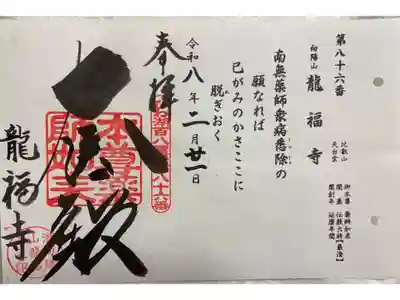 第八十六番
龍福寺
比叡山
天台宗
御本尊 薬師如来
開基 伝教大師【最澄】
開創年 延暦年間
南無薬師衆病悉除の
願なれば
已がみのかさここに
脱ぎおく
令和八年二月廿一日
奉拝
龍福寺